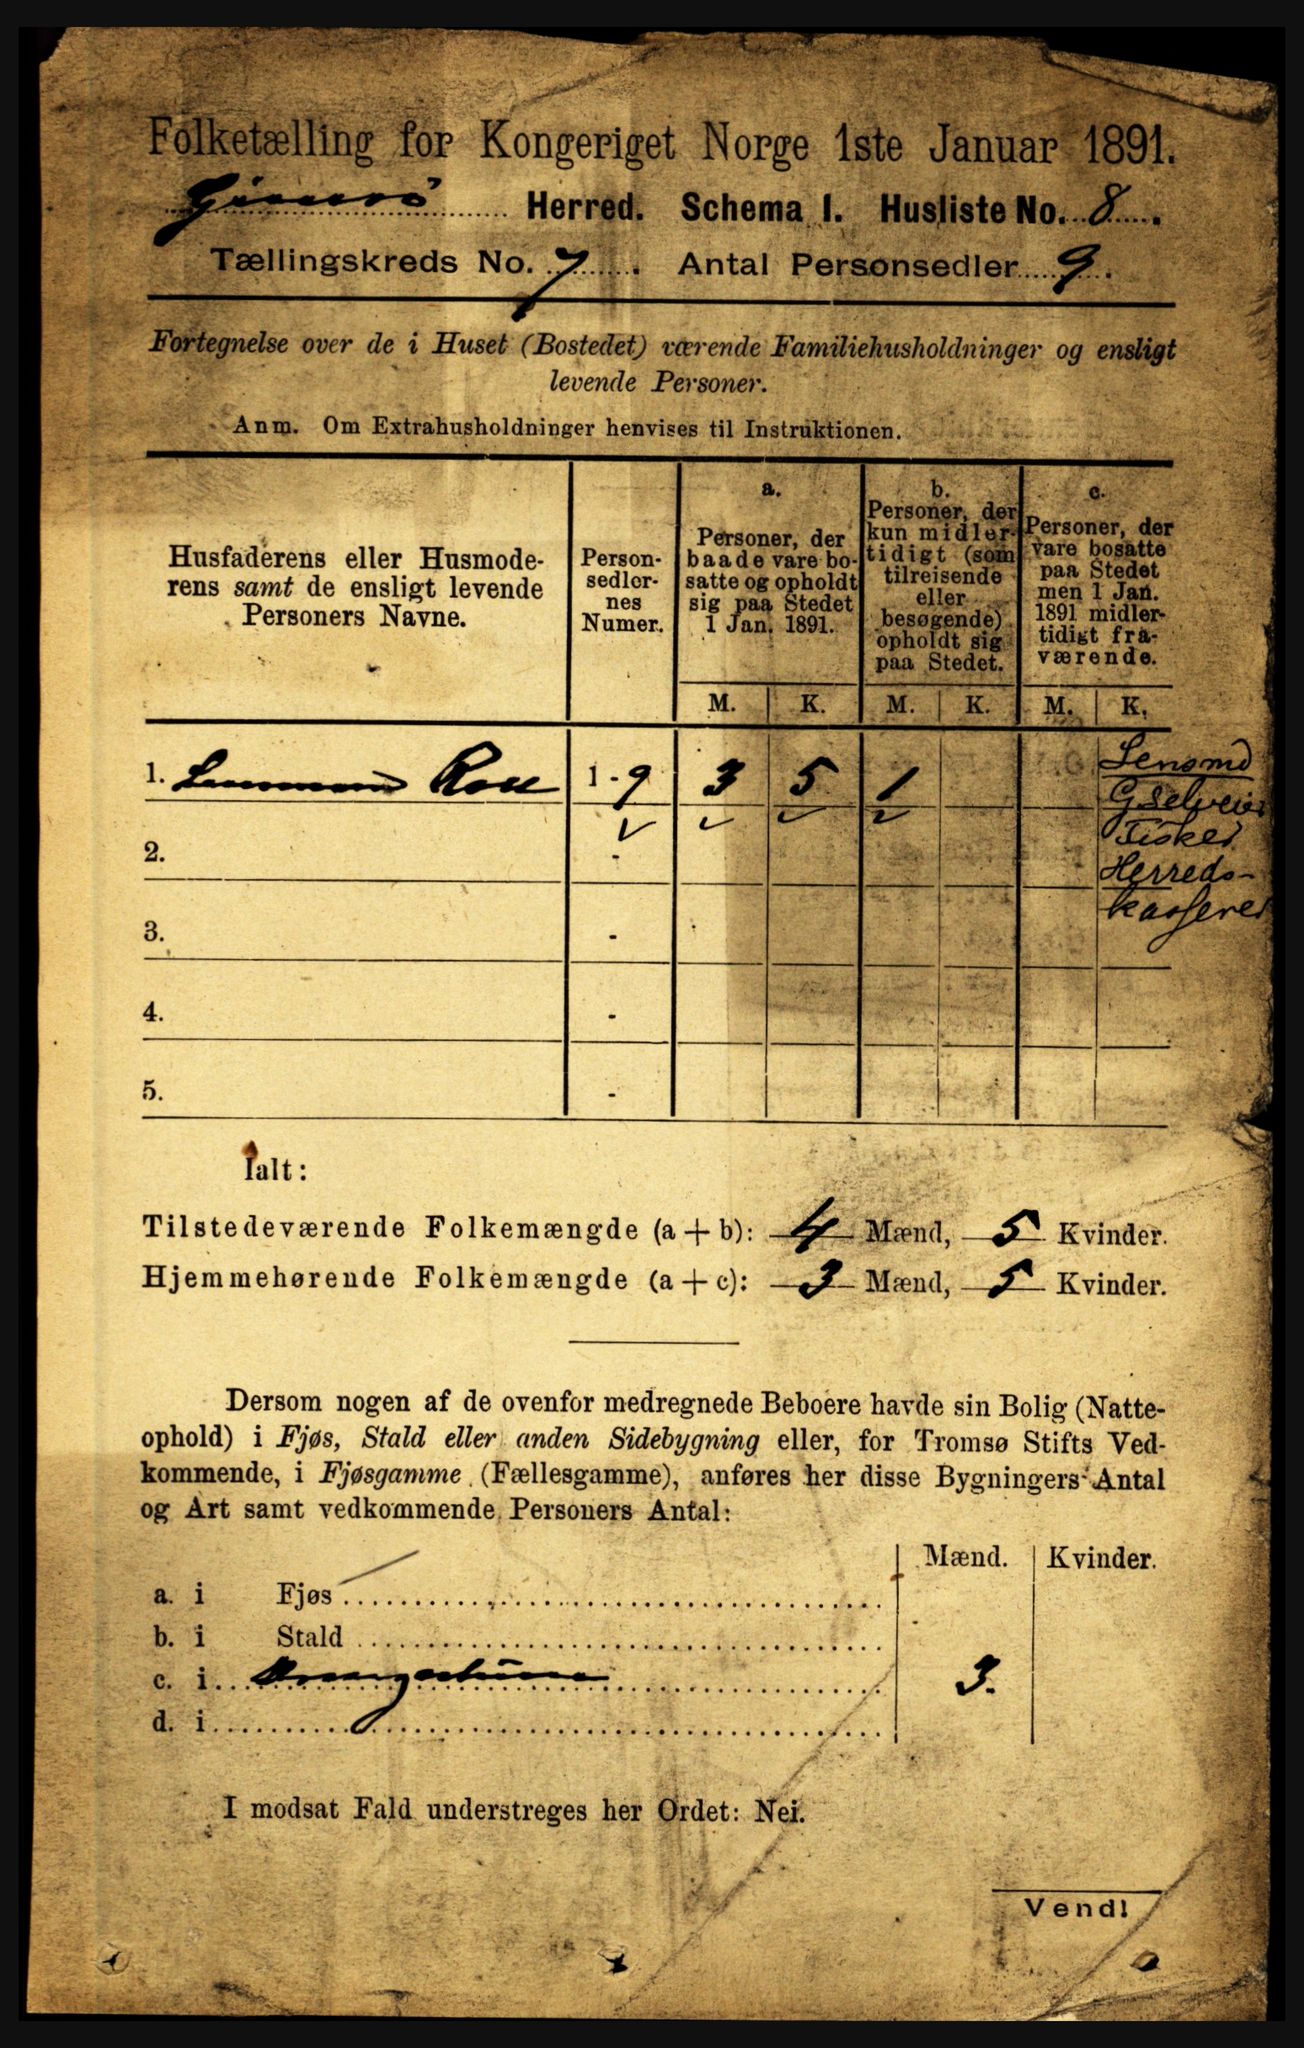 Folketælling for Kongeriget Norge 1ste Januar 1891.
Gimsø Herred. Schema 1. Husliste No. 8.
Tællingskreds No. 7. Antal Personsedler 9.
Fortegnelse over de i Huset (Bostedet) værende Familiehusholdninger og ensligt
levende Personer.
Anm. Om Extrahusholdninger henvises til Instruktionen.
Husfaderens eller Husmode-
rens samt de ensligt levende
Personers Navne.
Person-
sedler-
nes
Numer.
a.
Personer, der
baade vare bo-
satte og opholdt
sig paa Stedet
1 Jan. 1891.
b.
Personer, der
kun midler-
tidigt (som
tilreisende
eller
besøgende)
opholdt sig
paa Stedet.
c.
Personer, der
vare bosatte
paa Stedet
men 1 Jan.
1891 midler-
tidigt fra-
værende.
M. K. M. K. M. K.
1. Lensmand 1 - 9 3 5 1
Lensmd
G Selveier
Fisker
Herreds-
kasserer
2. -
3. -
4. -
5. -
Ialt:
Tilstedeværende Folkemængde (a + b): 4 Mænd, 5 Kvinder.
Hjemmehørende Folkemængde (a + c): 3 Mænd, 5 Kvinder.
Dersom nogen af de ovenfor medregnede Beboere havde sin Bolig (Natte-
ophold) i Fjøs, Stald eller anden Sidebygning eller, for Tromsø Stifts Ved-
kommende, i Fjøsgamme (Fællesgamme), anføres her disse Bygningers Antal
og Art samt vedkommende Personers Antal:
Mænd. Kvinder.
a. i Fjøs
b. i Stald
c. i Drengestuen 3.
d. i
I modsat Fald understreges her Ordet: Nei.
Vend!